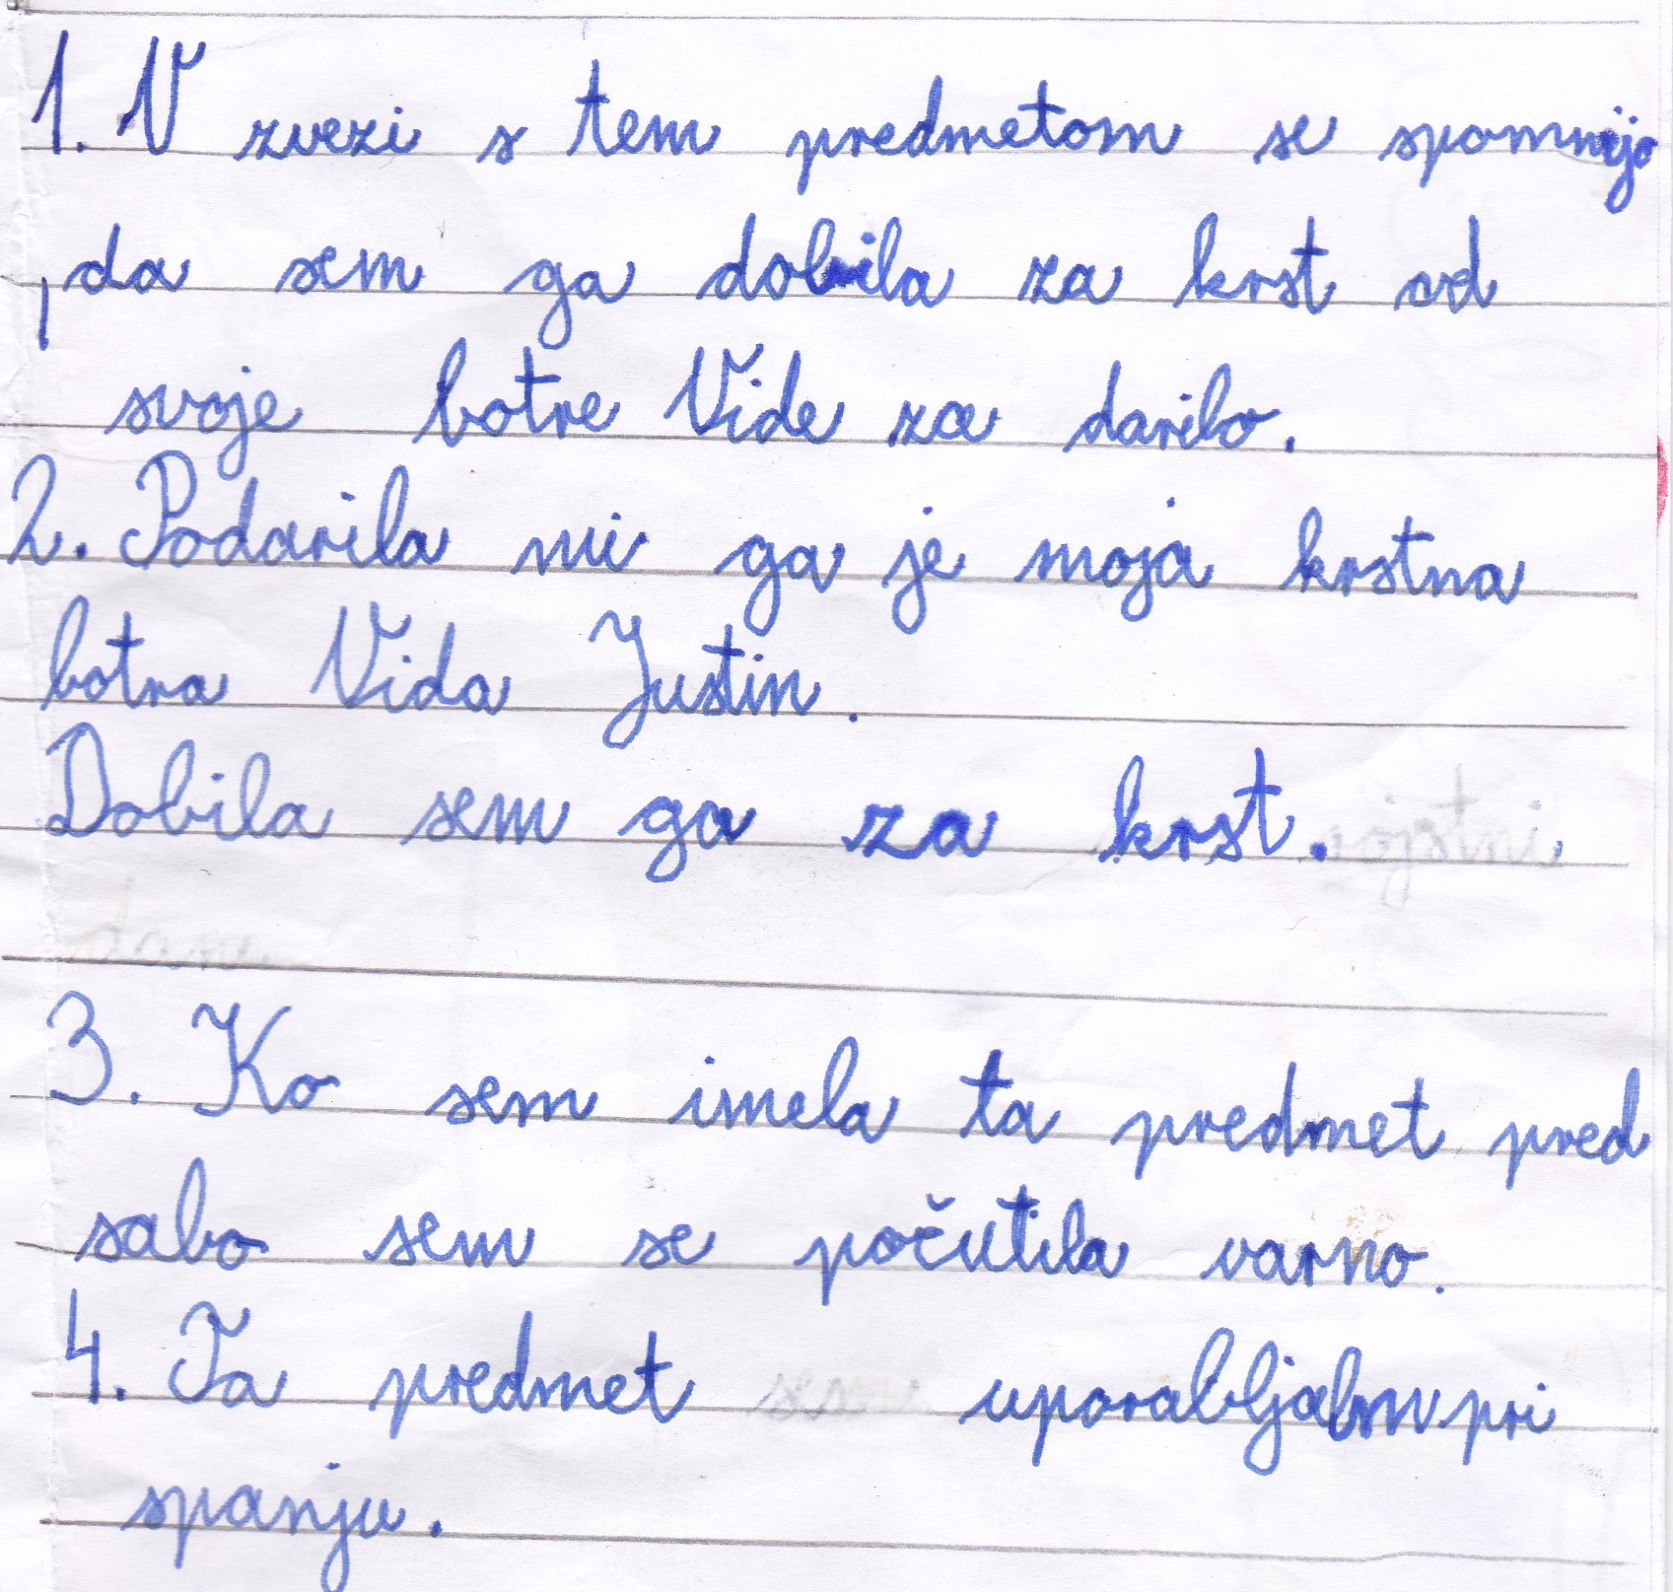 1. V zvezi s tem predmetom se spomnijo
, da sem ga dobila za krst od
svoje botre Vide za darilo.
2. Podarila mi ga je moja krstna
botra Vida Justin.
Dobila sem ga za krst.
3. Ko sem imela ta predmet pred
sabo sem se počutila varno.
4. Ta predmet uporabljam pri
spanju.